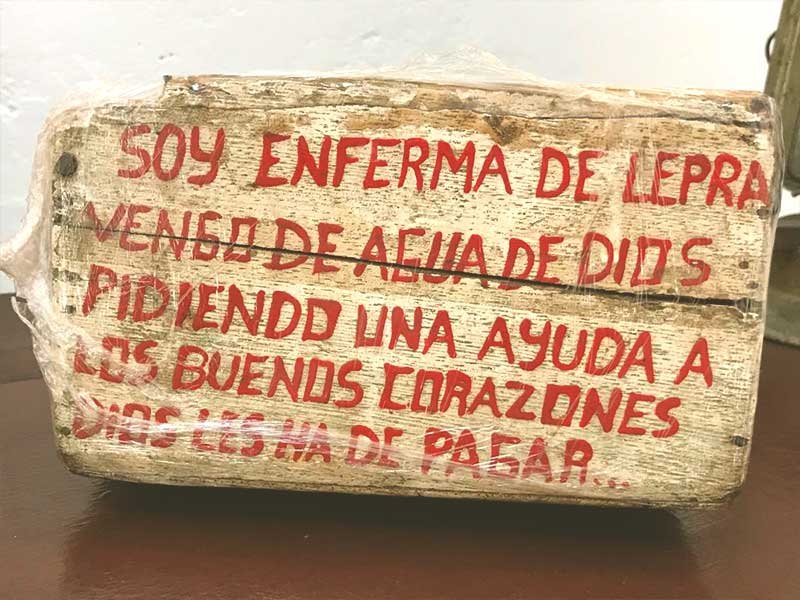 SOY ENFERMA DE LEPRA
VENGO DE AGUA DE DIOS
PIDIENDO UNA AYUDA A
LOS BUENOS CORAZONES
DIOS LES HA DE PAGAR...